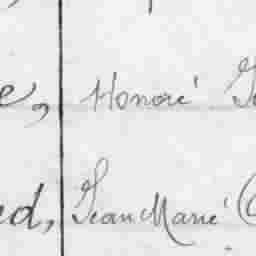 e, Honoré
ed, Jean Marie